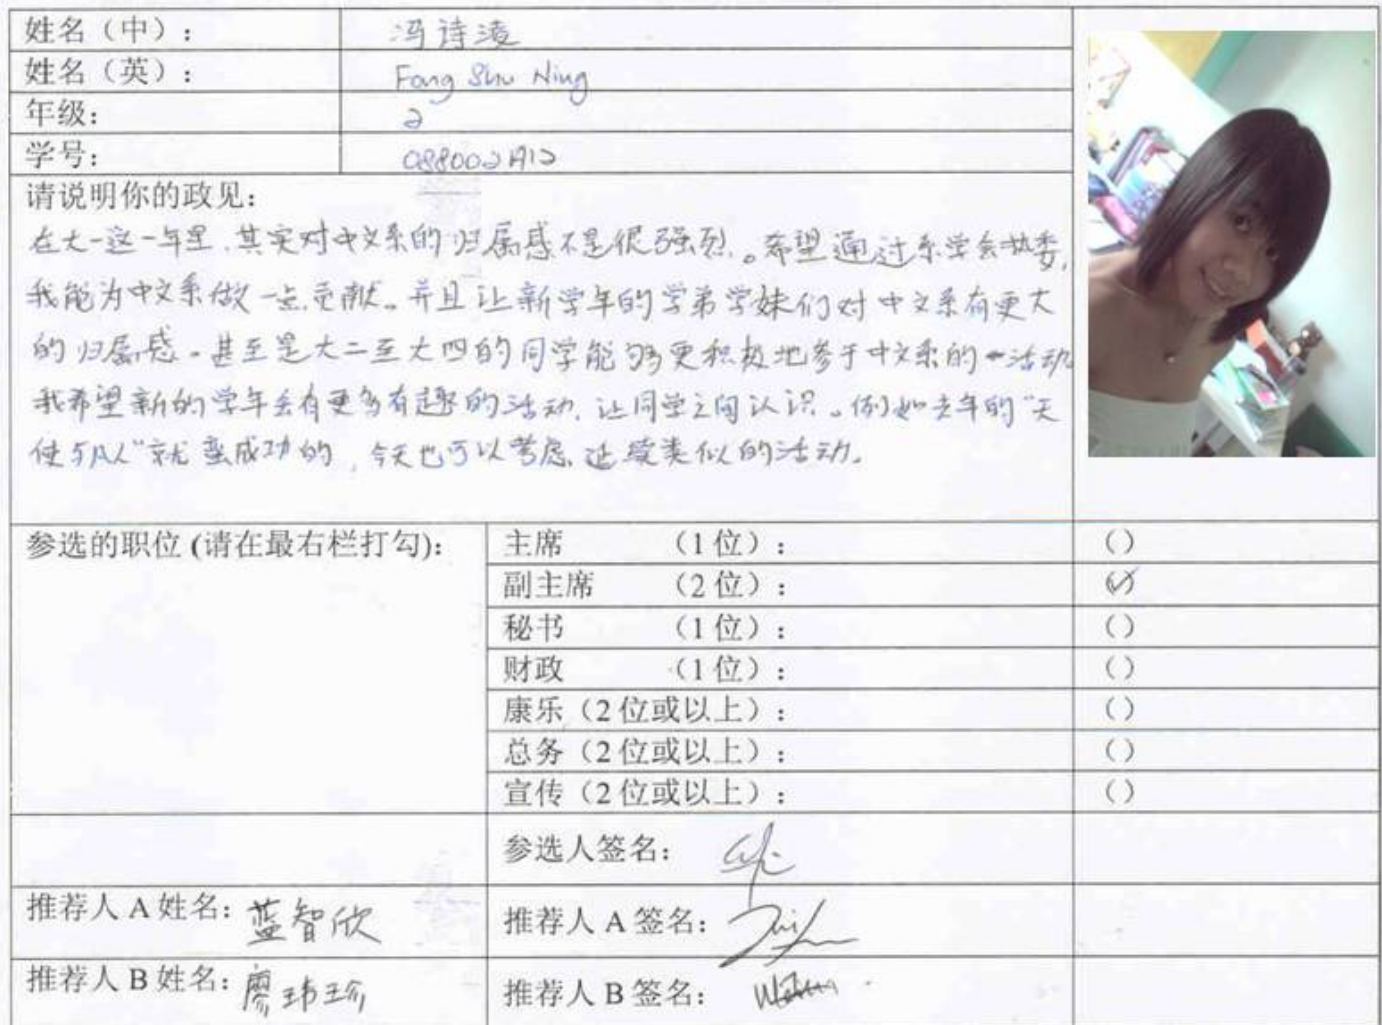 姓名（中）： 冯诗凌
姓名（英）： Fong Shu Ning
年级： 2
学号： 088002A12
请说明你的政见：
在大一这一年里，其实对中文系的归属感不是很强烈。希望通过系学会执委，
我能为中文系做一点贡献。并且让新学年的学弟学妹们对中文系有更大
的归属感。甚至是大二至大四的同学能够更积极地参于中文系的活动
我希望新的学年会有更多有趣的活动，让同学之间认识。例如去年的“天
使与凡人”就蛮成功的，今天也可以考虑延续类似的活动。
参选的职位 (请在最右栏打勾)：
主席 （1 位）： （）
副主席 （2 位）： （✓）
秘书 （1 位）： （）
财政 （1 位）： （）
康乐（2 位或以上）： （）
总务（2 位或以上）： （）
宣传（2 位或以上）： （）
参选人签名：
推荐人 A 姓名：蓝智欣 推荐人 A 签名：
推荐人 B 姓名：廖玮珍 推荐人 B 签名：